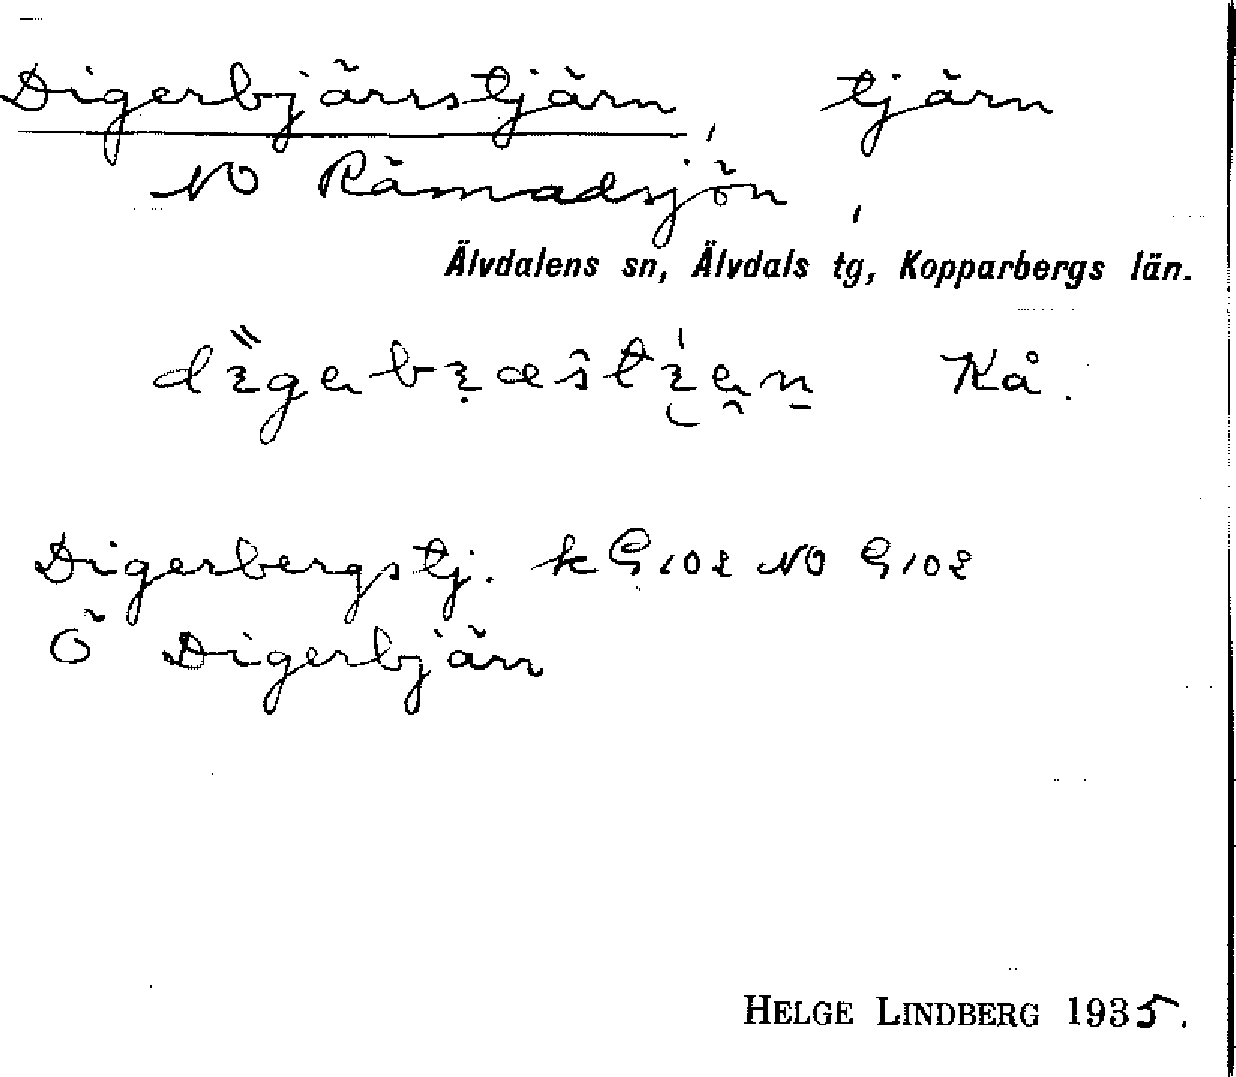 Digerbjärrstjärn, tjärn
NO Rämadsjön,
Älvdalens sn, Älvdals tg, Kopparbergs län.
Kå.
Digerbergstj. k G102 NO G102
Ö Digerbjärr
HELGE LINDBERG 1935.